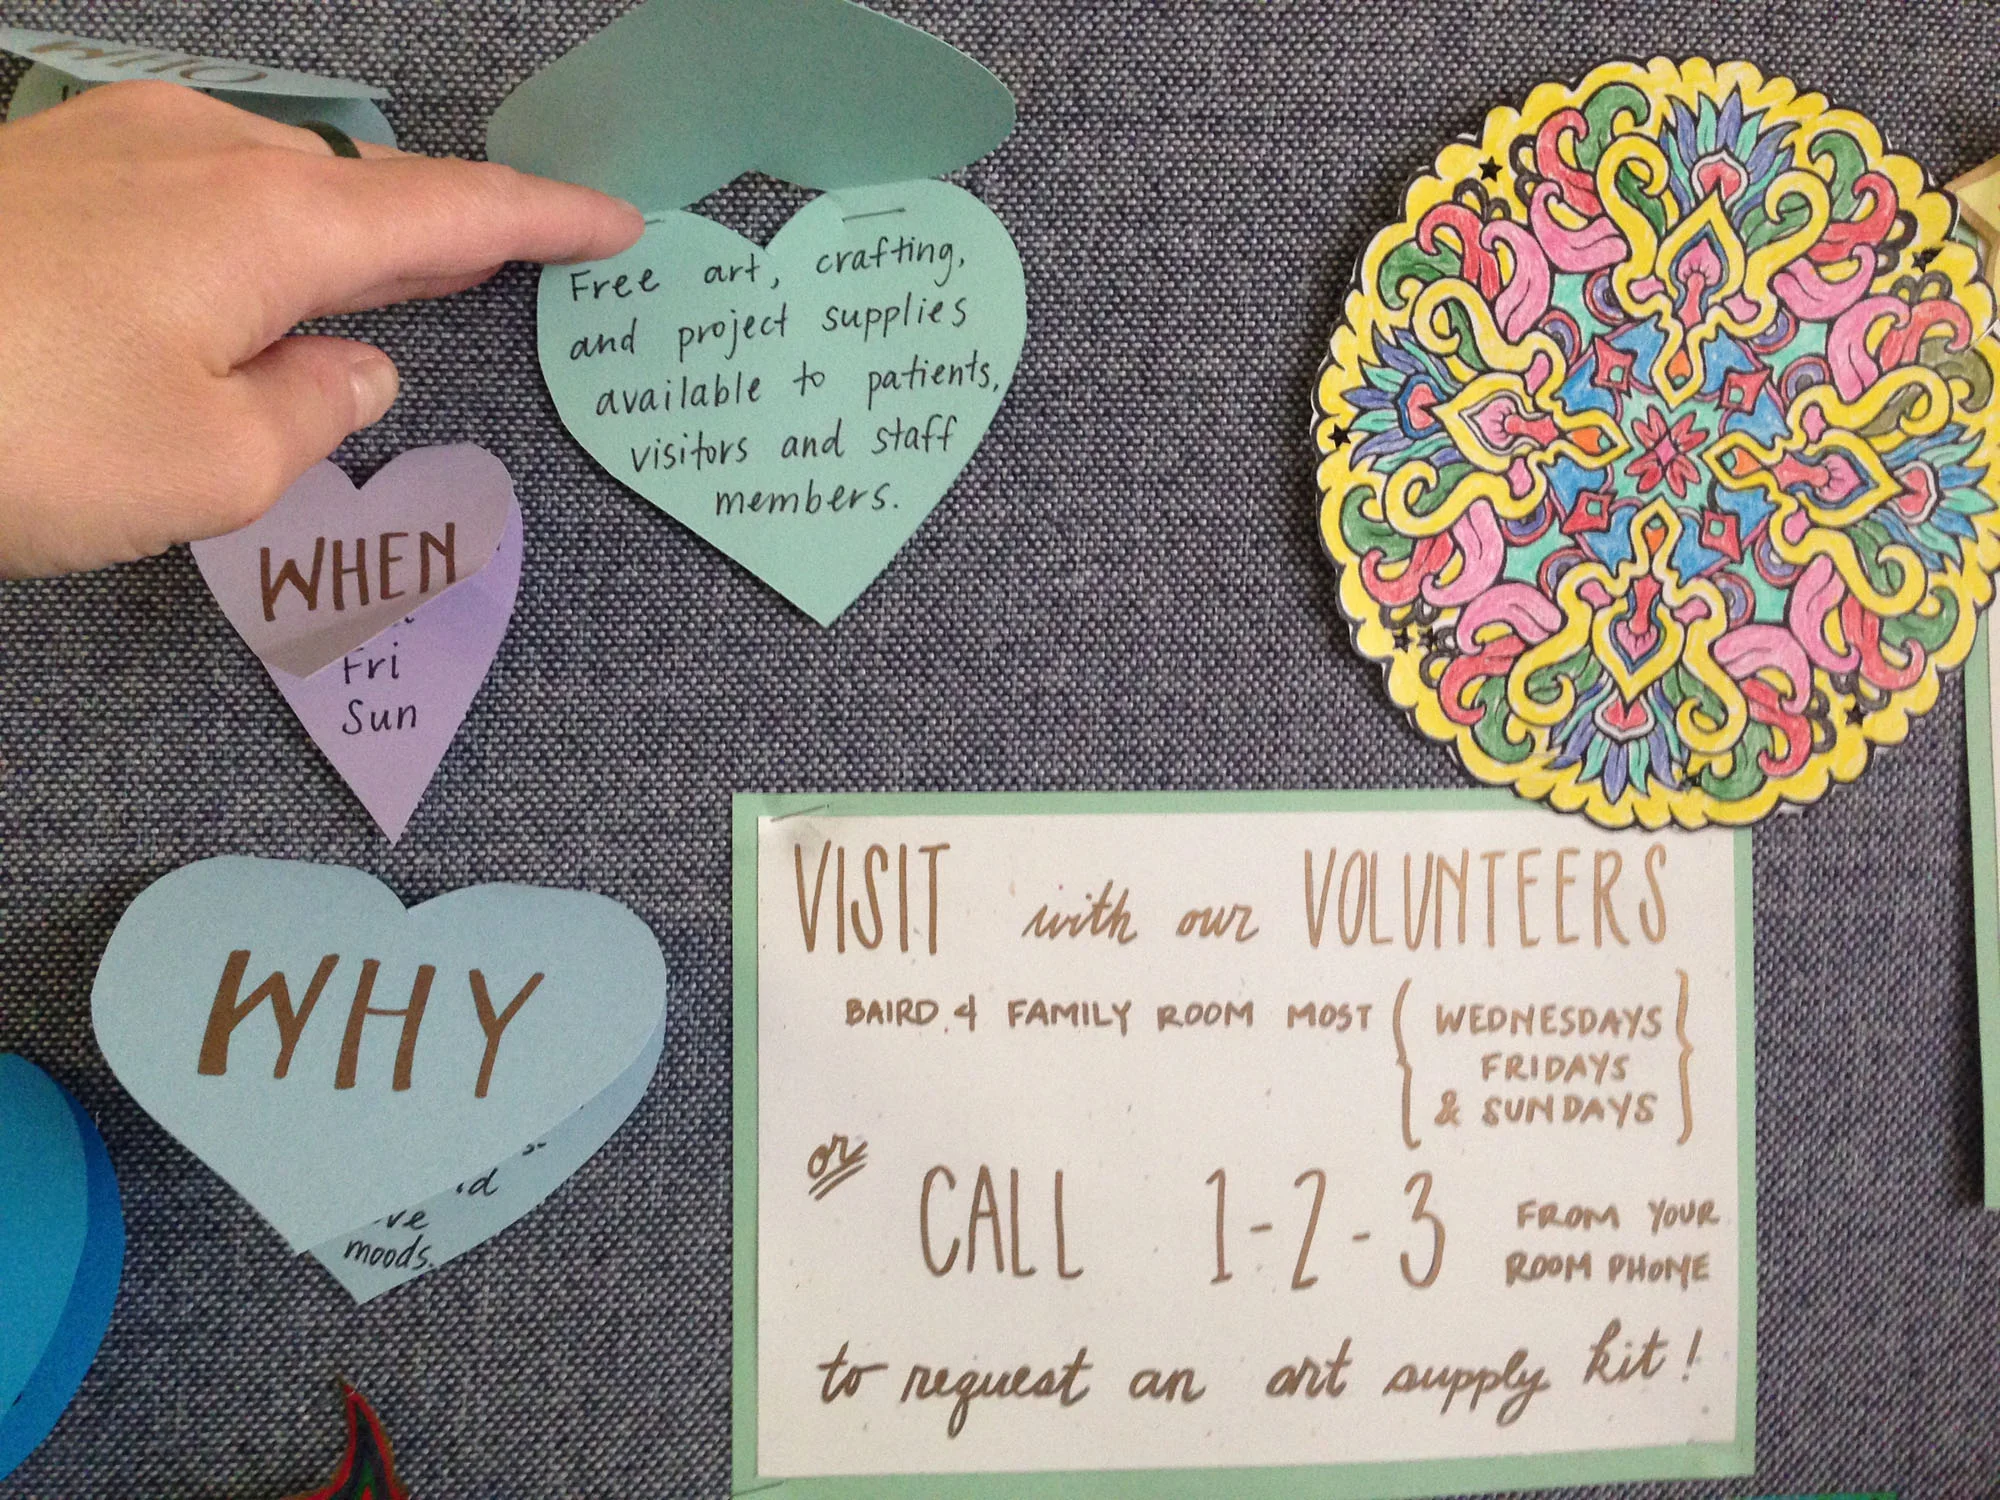 WHO
Free art, crafting,
and project supplies
available to patients,
visitors and staff
members.
WHEN
Fri
Sun
WHY
moods.
VISIT with our VOLUNTEERS
BAIRD 4 FAMILY ROOM MOST { WEDNESDAYS
FRIDAYS
& SUNDAYS }
or
CALL 1-2-3 FROM YOUR
ROOM PHONE
to request an art supply kit!